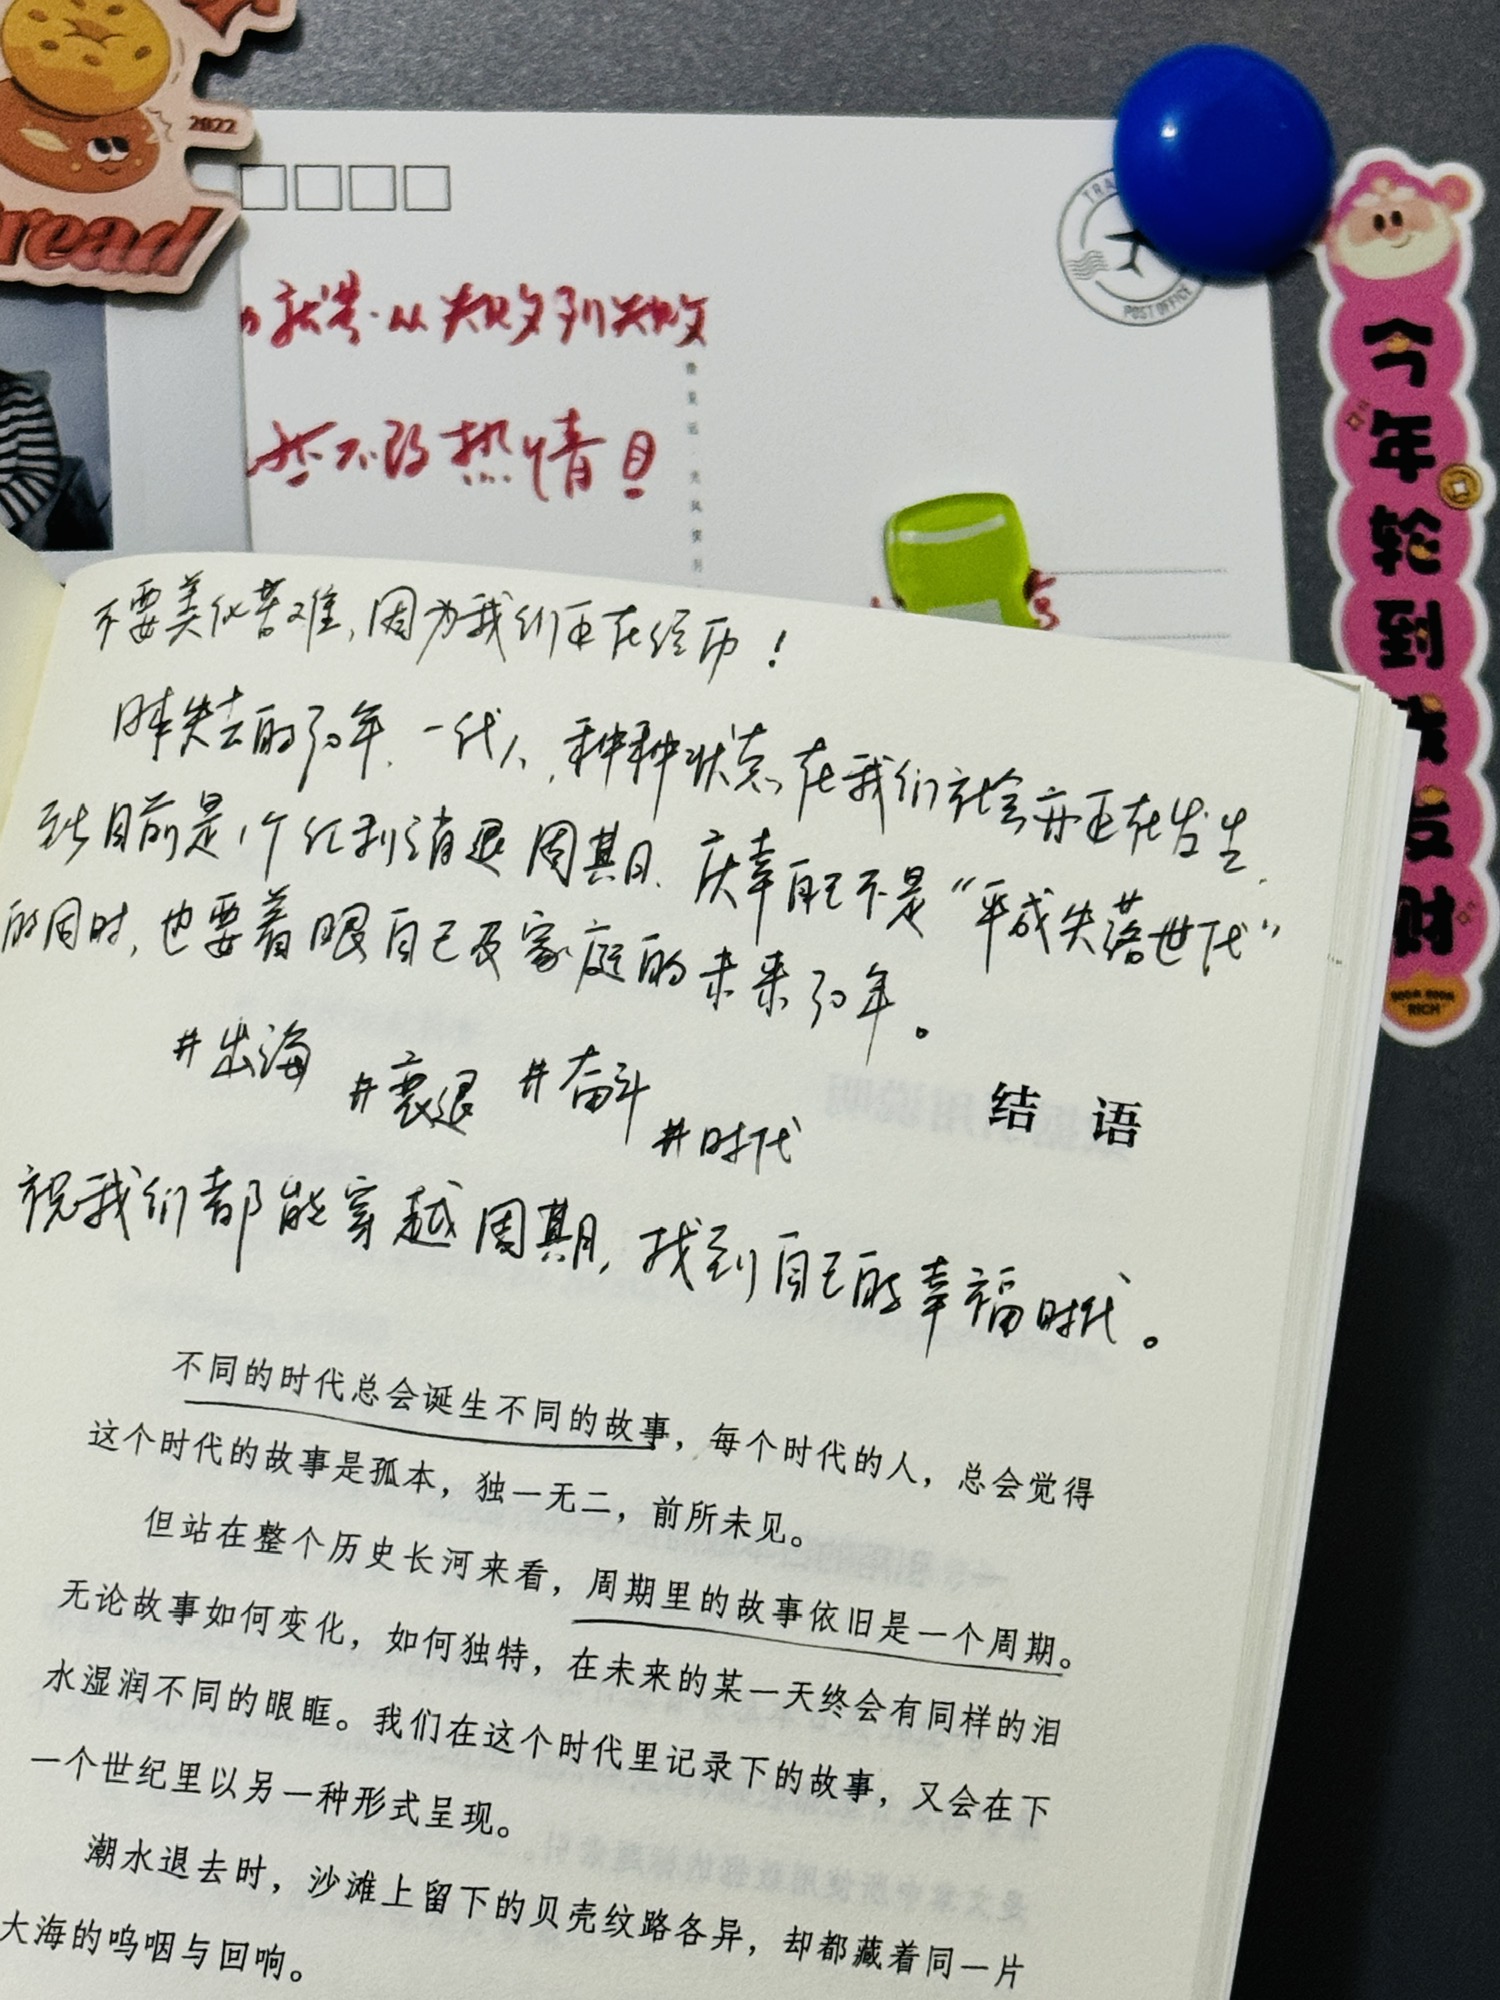 2022
read
TRA
POST OFFICE
就是·从失败到失败
然不改热情
今年轮到我发财
SOON SOON
RICH
不要美化苦难，因为我们正在经历！
日本失去的30年、一代人，种种状态在我们社会亦正在发生，
到目前是个红利消退周期、庆幸自己不是“平成失落世代”
的同时，也要着眼自己及家庭的未来30年。
#出海 #衰退 #奋斗
#时代
结 语
祝我们都能穿越周期，找到自己的幸福时代。
不同的时代总会诞生不同的故事，每个时代的人，总会觉得
这个时代的故事是孤本，独一无二，前所未见。
但站在整个历史长河来看，周期里的故事依旧是一个周期。
无论故事如何变化，如何独特，在未来的某一天终会有同样的泪
水湿润不同的眼眶。我们在这个时代里记录下的故事，又会在下
一个世纪里以另一种形式呈现。
潮水退去时，沙滩上留下的贝壳纹路各异，却都藏着同一片
大海的呜咽与回响。